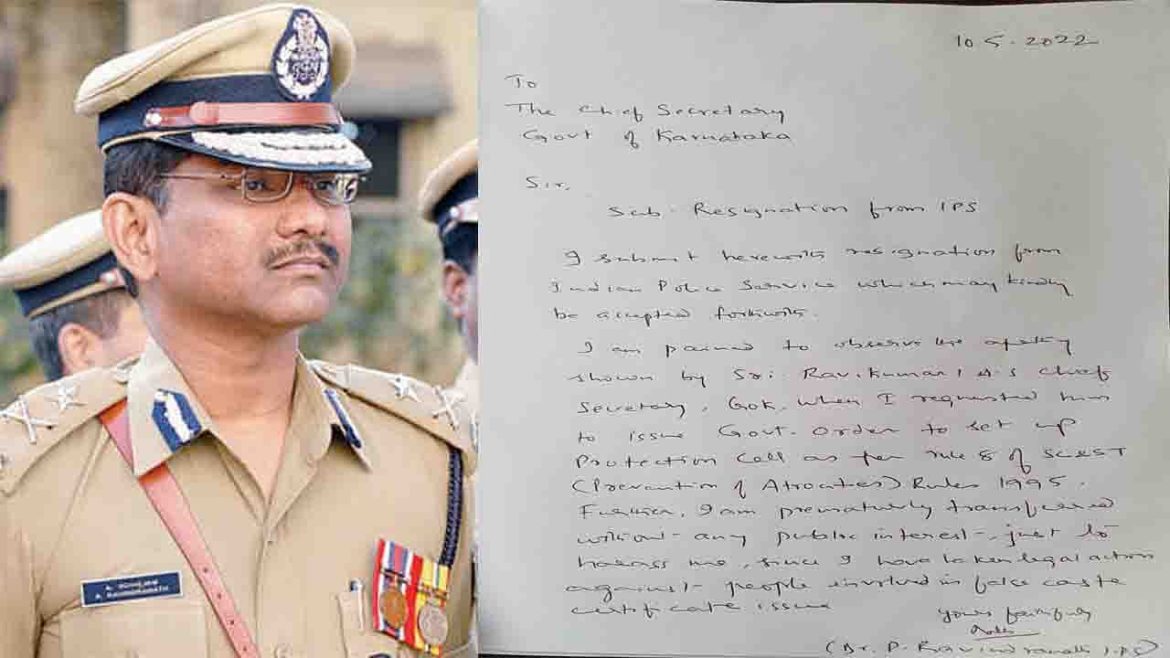 10.5.2022
To
The Chief Secretary
Govt of Karnataka
Sir,
Sub- Resignation from IPS
I submit herewith resignation from
Indian Police Service which may kindly
be accepted forthwith.
I am pained to observe the apathy
shown by Sri Ravikumar IAS Chief
Secretary, GoK, when I requested him
to issue Govt. Order to set up
Protection Cell as per rule 8 of SC&ST
(Prevention of Atrocities) Rules 1995.
Further, I am prematurely transferred
without any public interest, just to
harass me, since I have taken legal action
against people involved in false caste
certificate issue
Yours faithfully
(Dr. P. Ravindranath IPS)